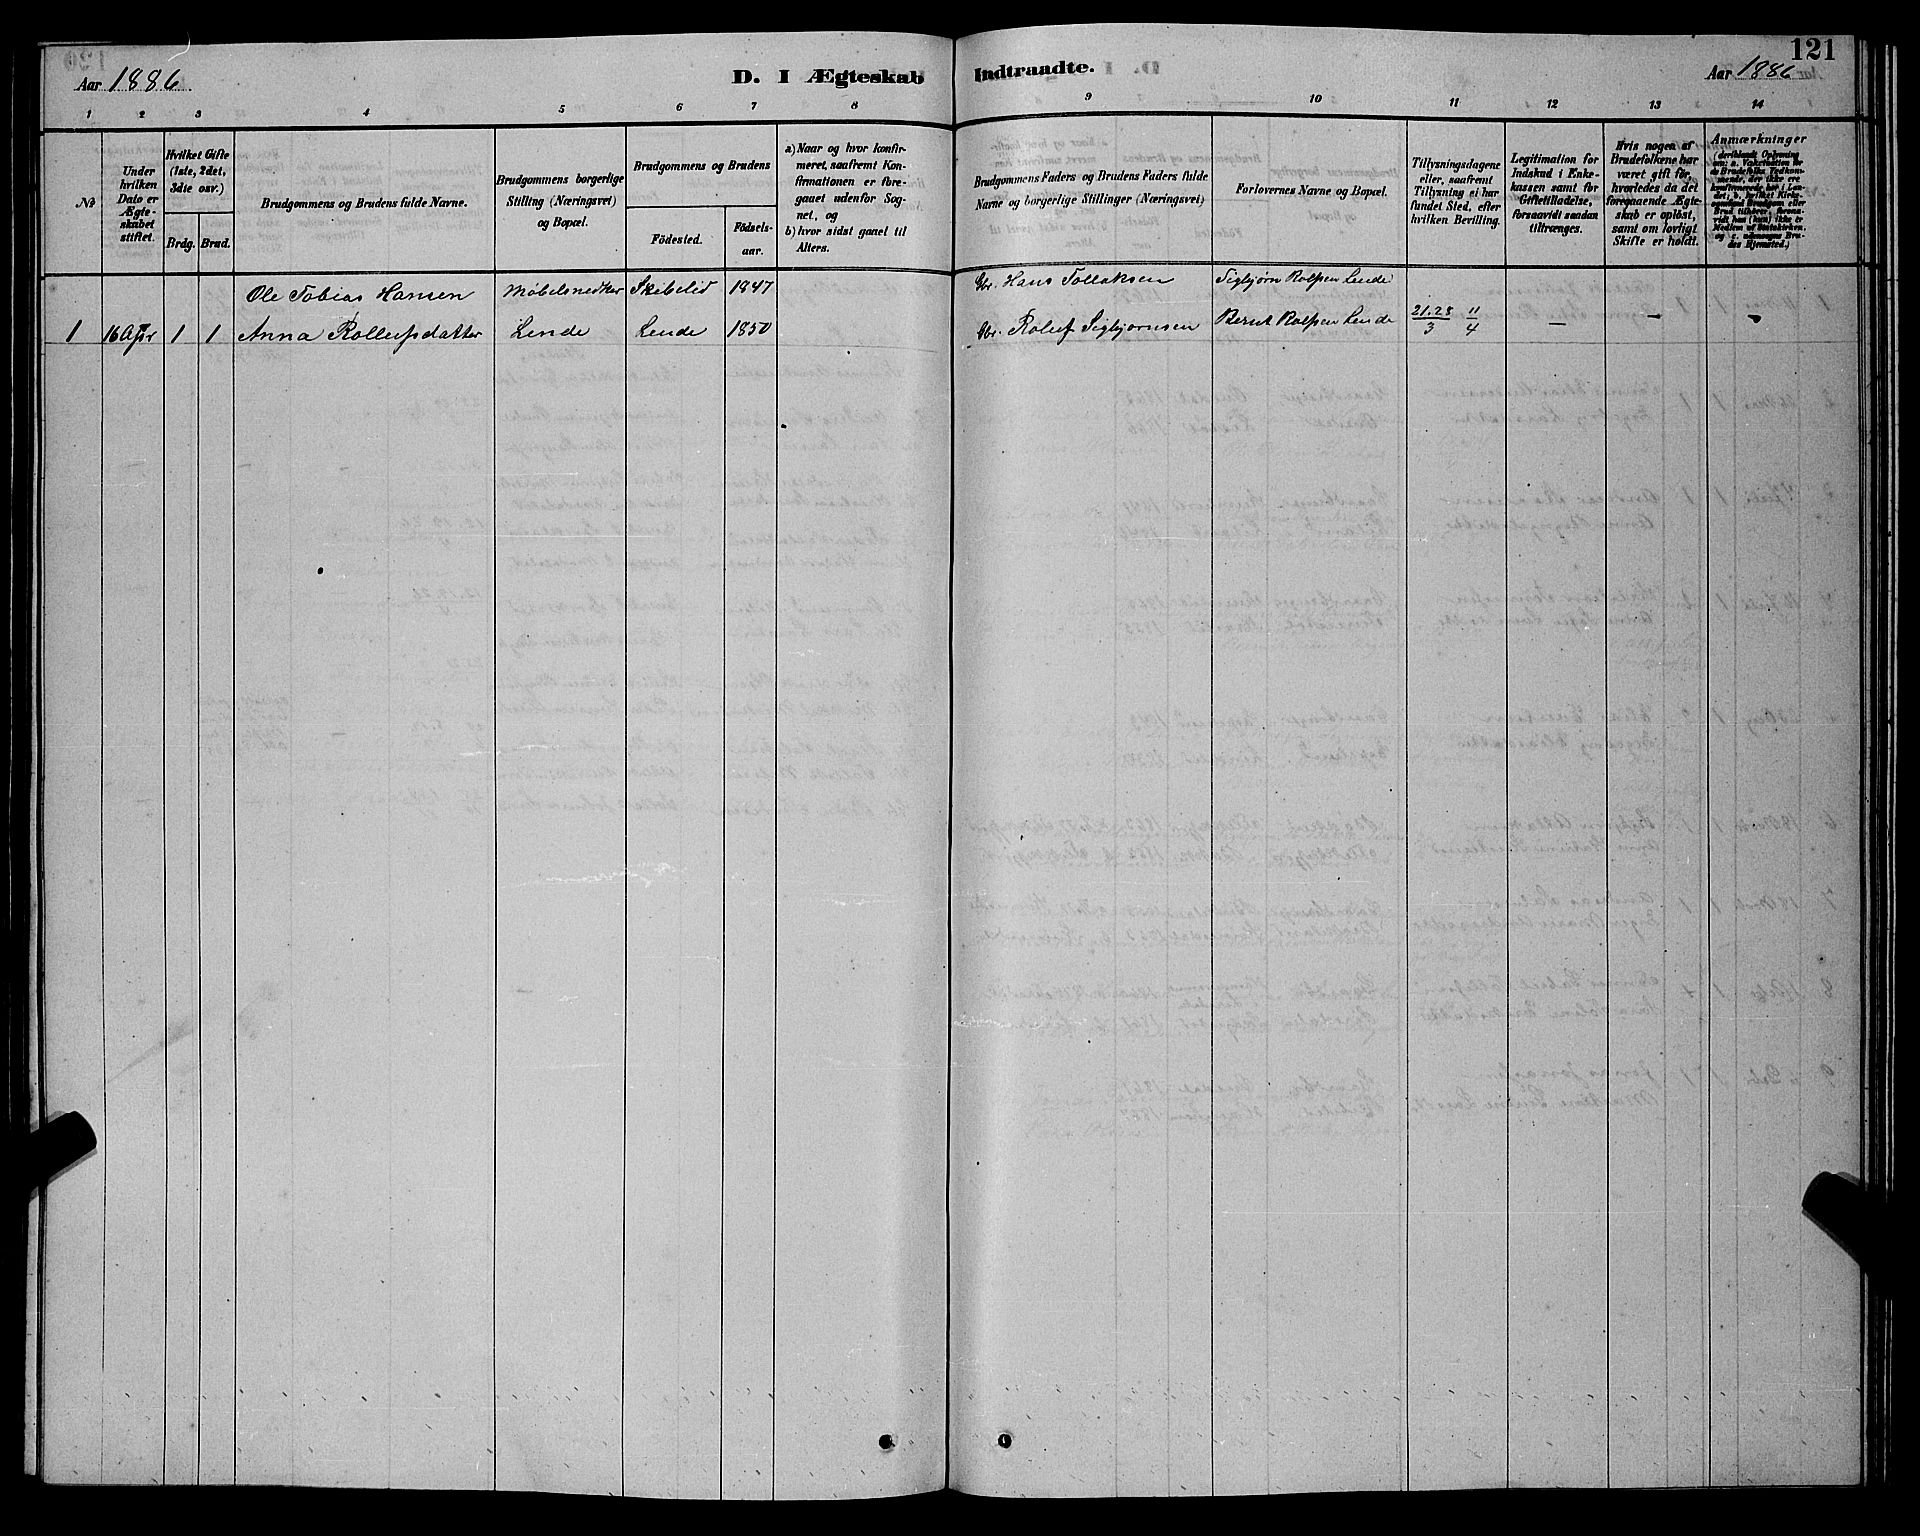 121
Aar 1886. D. I Ægteskab Indtraadte. Aar 1886
1 2 3 4 5 6 7 8 9 10 11 12 13 14
No
Under hvilken Dato er Ægteskabet stiftet.
Hvilket Gifte (1ste, 2det, 3die osv.)
Brdg. Brud.
Brudgommens og Brudens fulde Navne.
Brudgommens borgerlige Stilling (Næringsvei) og Bopæl.
Brudgommens og Brudens
Födested. Födselsaar.
a) Naar og hvor konfirmeret, saafremt Konfirmationen er foregaaet udenfor Sognet, og
b) hvor sidst gaaet til Alters.
Brudgommens Faders og Brudens Faders fulde Navne og borgerlige Stillinger (Næringsvei)
Forlovernes Navne og Bopæl.
Tillysningsdagene eller, saafremt Tillysning ei har fundet Sted, efter hvilken Bevilling.
Legitimation for Indskud i Enkekassen samt for Giftetilladelse, forsaavidt saadan tiltrænges.
Hvis nogen af Brudefolkene har været gift för, hvorledes da det foregaaende Ægteskab er oplöst, samt om lovligt Skifte er holdt.
Anmærkninger
Ole Tobias Hansen Möbelsnedker Skebelid 1847 Gbr. Hans Tollaksen Sigbjørn Rolfsen Lende
1 16 Apr 1 1 Anna Rolleifsdatter Lende Lende 1850 Gbr. Roluf Sigbjørnsen Bernt Rolfsen Lende 21.28/3 11/4 — — —